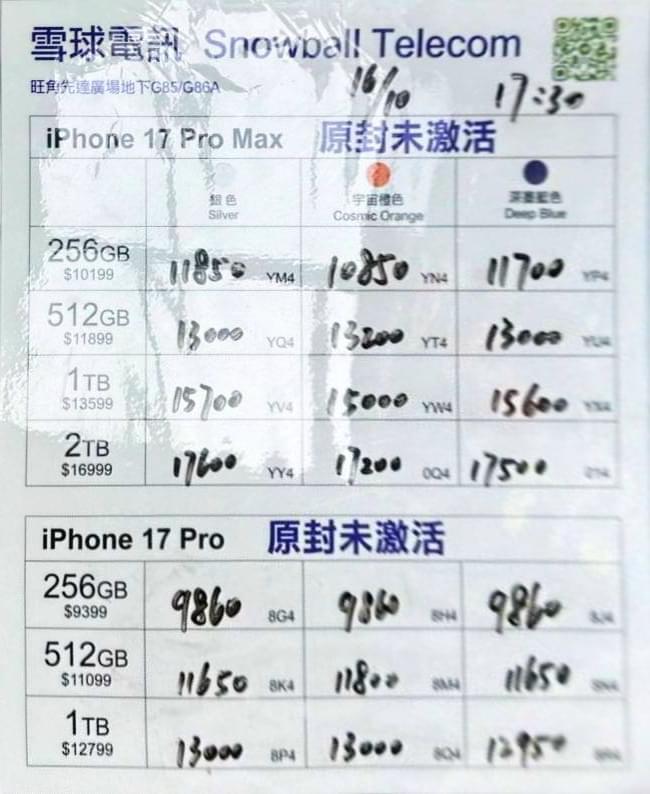 雪球電訊 Snowball Telecom
旺角先達廣場地下G85/G86A
16/10 17:30
iPhone 17 Pro Max 原封未激活
銀色 宇宙橙色 深墨藍色
Silver Cosmic Orange Deep Blue
256GB 11850 YM4 10850 YN4 11700 YP4
$10199
512GB 13000 YQ4 13200 YT4 13000 YU4
$11899
1TB 15700 YV4 15000 YW4 15600 YX4
$13599
2TB 17600 YY4 17200 0Q4 17500
$16999
iPhone 17 Pro 原封未激活
256GB 9860 8G4 9860 8H4 9860 8J4
$9399
512GB 11650 8K4 11800 8M4 11650 8N4
$11099
1TB 13000 8P4 13000 8Q4 12950
$12799